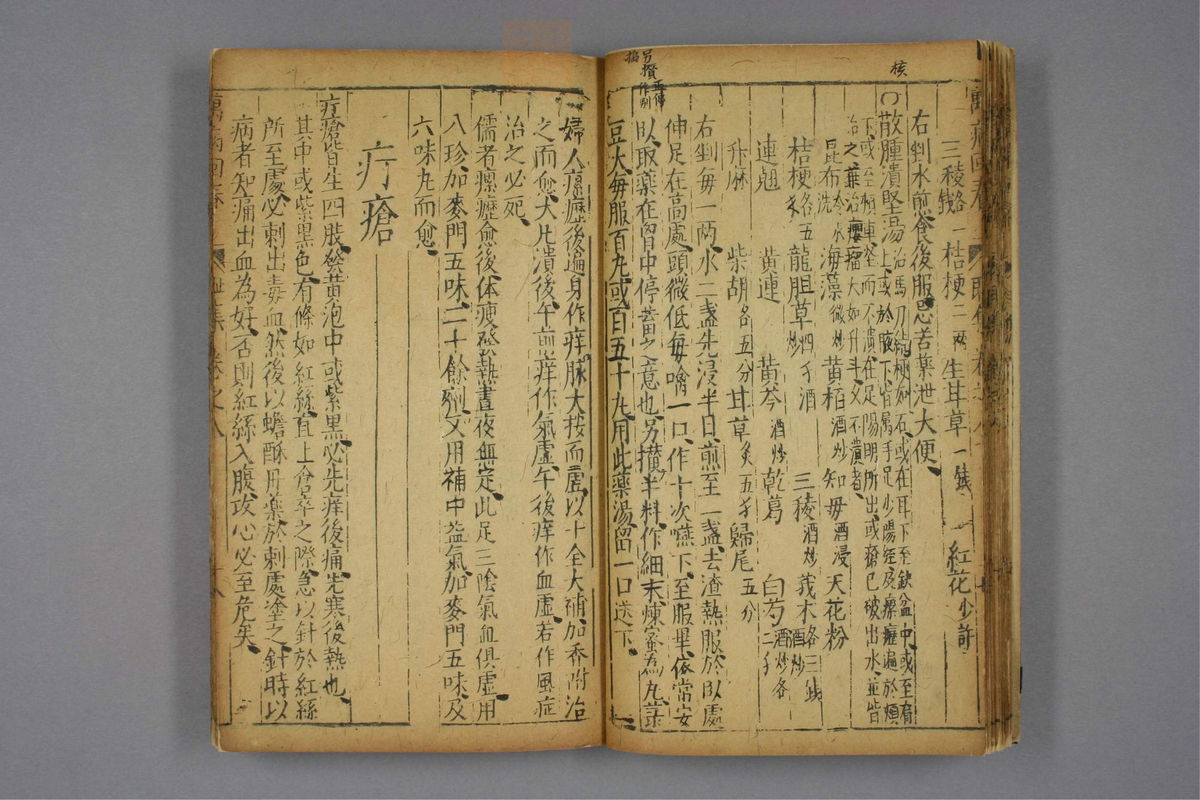 核
三稜 各一錢 桔梗 二兩 生甘草 一錢 紅花 少許
右剉水煎食後服忌苦藥泄大便
散腫潰堅湯 治馬刀結核如石或在耳下至缺盆中或至肩上或於脇下皆屬手足少陽經及瘰癧遍於頰
下或至頰車堅而不潰在足陽明所出或瘡已破出水並皆治之兼治癭瘤大如升斗久不潰者
昆布 冷水洗 海藻 微炒 黃柏 酒炒 知母 酒浸 天花粉
桔梗 各五 龍胆草 炒四 酒 三稜 酒炒 莪朮 酒炒 各三錢
連翹 黃連 黃芩 酒炒 乾葛 白芍 酒炒各二
升麻 柴胡 各五分 甘草 炙五 歸尾 五分
右剉每一兩水二盞先浸半日煎至一盞去渣熱服於臥處
伸足在高處頭微低每噙一口作十次嚥下至服畢依常安
臥取藥在胷中停蓄之意也另攢半料作細末煉蜜為丸菉
豆大每服百丸或百五十丸用此藥湯留一口送下
另攢
一婦人瘰癧後遍身作痒脉大按而虛以十全大補加香附治
之而愈大凡潰後午前痒作氣虛午後痒作血虛若作風症
治之必死
儒者瘰癧愈後体疲發熱晝夜無定此足三陰氣血俱虛用
八珍加麥門五味二十餘劑又用補中益氣加麥門五味及
六味丸而愈
疔瘡
疔瘡皆生四肢發黃泡中或紫黑必先痒後痛先寒後熱也
其中或紫黑色有條如紅絲直上倉卒之際急以針於紅絲
所至處必刺出毒血然後以蟾酥丹藥於刺處塗之針時以
病者知痛出血為好否則紅絲入腹攻心必至危矣